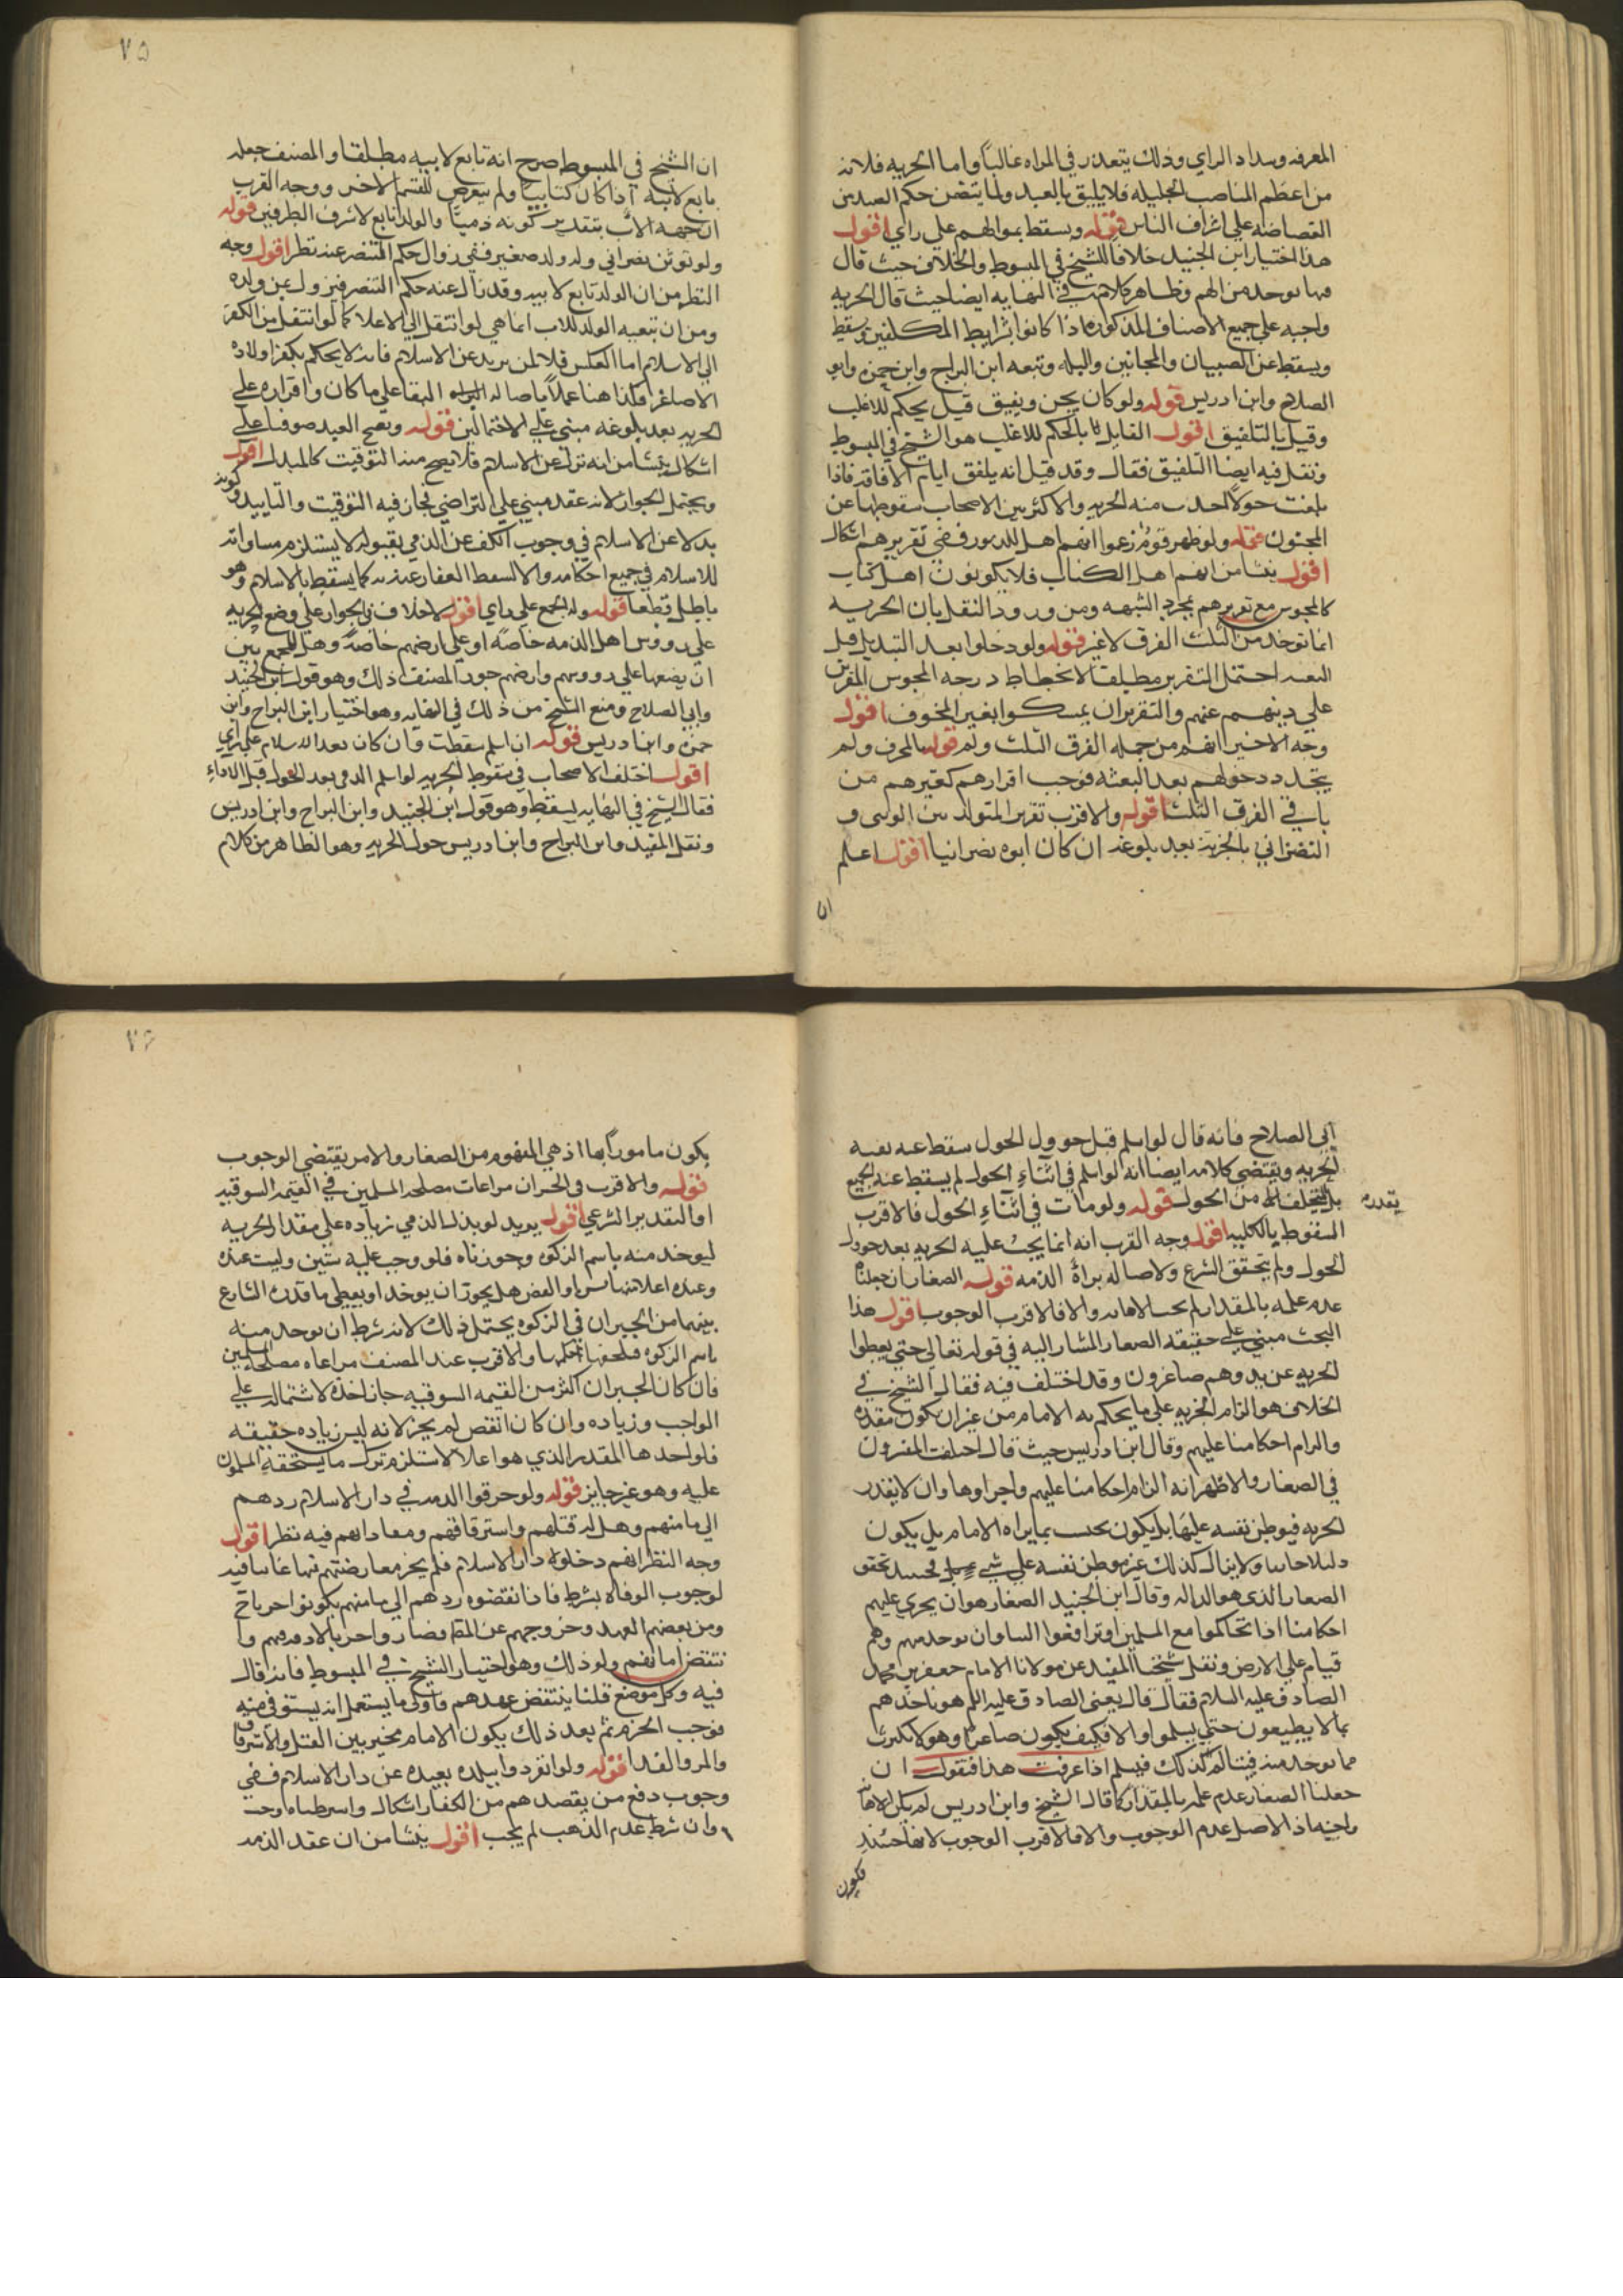 المعرفه وسداد الراي وذلك يتعذر في المراه غالباً واما الحريه فلانه
من اعظم المناصب الجليله فلا يليق بالعبد ولما يتضمن حكم العبد من
الغضاضه علي اشراف الناس قوله ويسقط بمولاهم علي راي اقول
هذا اختيار ابن الجنيد خلافا للشيخ في المبسوط والخلاف حيث قال
فيها يوخذ من الهم وظاهر كلامه في النهايه ايضا حيث قال الجزيه
واجبه علي جميع الاصناف المذكوره اذا كانوا بشرايط المكلفين ويسقط
ويسقط عن الصبيان والمجانين والبله وتبعه ابن البراج وابن حمزه وابو
الصلاح وابن ادريس قوله ولو كان يجن ويفيق قيل يحكم للاغلب
وقيل بالتلفيق اقول القايل بالحكم للاغلب هو الشيخ في المبسوط
ونقل فيه ايضا التلفيق فقال وقد قيل انه يلفق ايام الافاقه فاذا
بلغت حولا اخذت منه الجزيه والاكثر من الاصحاب سقوطها عن
المجنون قوله ولو ظهر قوم زعموا انهم اهل الزبور ففي تقريرهم اشكال
اقول ينشا من انهم اهل الكتاب فلا يكونون اهل كتاب
كالمجوس مع تقريرهم بمجرد الشبهه ومن ورود النقل بان الجزيه
انما توخذ من الثلث الفرق لا غير قوله ولو دخلوا بعد التبديل قبل
البعثه احتمل التقرير مطلقا لانحطاط درجه المجوس المقرين
علي دينهم عنهم والتقرير ان تمسكوا بغير المحرف اقول
وجه الاخير انهم من جمله الفرق الثلث ولم قوله بالمحرف ولم
يتجدد دخولهم بعد البعثه فوجب اقرارهم كغيرهم من
باقي الفرق الثلث قوله والاقرب تقرير المتولد بين الوثني و
النصراني بالجزيه بعد بلوغه ان كان ابوه نصرانيا اقول اعلم
ان
٧٥
ان الشيخ في المبسوط صرح انه تابع لابيه مطلقا والمصنف جعله
تابع لابيه اذا كان كتابيا ولم يتعرض للقسم الاخر ووجه القرب
ان جهه الاب بتقدير كونه ذميا والولد تابع لاشرف الطرفين قوله
ولو توثن نصراني وله ولد صغير ففي زوال حكم التنصر عنه نظر اقول وجه
النظر من ان الولد تابع لابيه وقد زال عنه حكم التنصر فيزول عن ولده
ومن ان تبعيه الولد للاب انما هي لو انتقل الي الاعلا كما لو انتقل من الكفر
الي الاسلام اما العكس فلا لمن يريد عن الاسلام فانه لا يحكم بكفر اولاده
الاصاغر فكذا هنا عملا باصاله البقا علي ما كان واقراره علي
الجزيه بعد بلوغه مبني علي الاحتمالين قوله ويصح العبد صوفا علي
اشكال ينشا من انه نزل عن الاسلام فلا يصح منه التوقيت كالمبدل اقول
ويحتمل الجواز لانه عقد مبني علي التراضي فجاز فيه التوقيت والتابيد وكونه
بدلا عن الاسلام في وجوب الكف عن الذمي بقبوله لا يستلزم مساواته
للاسلام في جميع احكامه والا لسقط العقار عنه كما يسقط بالاسلام وهو
باطل قطعا قوله وله الجمع علي راي اقول لا خلاف في الجواز علي وضع الجزيه
علي رووس اهل الذمه خاصه او علي ارضهم خاصه وهل للجمع بين
ان يضعها علي رووسهم وارضهم جوز المصنف ذلك وهو قول ابن الجنيد
وابي الصلاح ومنع الشيخ من ذلك في النهايه وهو اختيار ابن البراج وابن
حمزه وابن ادريس قوله ان اسلم سقطت وان كان بعد الاسلام علي راي
اقول اختلف الاصحاب في سقوط الجزيه لو اسلم الذمي بعد الحول قبل الاداء
فقال الشيخ في النهايه يسقط وهو قول ابن الجنيد وابن البراج وابن ادريس
ونقل المفيد وابن البراج وابن ادريس حول الجزيه وهو الظاهر من كلام
ابي الصلاح فانه قال لو اسلم قبل حوول الحول سقط عنه بقيه
الجزيه ويقتضي كلامه ايضا انه لو اسلم في اثناء الحول لم يسقط عنه الجميع
بل من الحول قوله ولو مات في اثناء الحول فالاقرب
يقدره
السقوط بالكليه اقول وجه القرب انه انما يجب عليه الجزيه بعد حوول
الحول ولم يتحقق الشرع ولاصاله براة الذمه قوله الصغار ان جعلناه
عدم علمه بالمقدار لم يجب الاهانه والا فالاقرب الوجوب اقول هذا
البحث مبني علي حقيقه الصغار المشار اليه في قوله تعالي حتي يعطوا
الجزيه عن يد وهم صاغرون وقد اختلف فيه فقال الشيخ في
الخلاف هو الزام الجزيه علي ما يحكم به الامام من غير ان يكون مقدره
والزام احكامنا عليهم وقال ابن ادريس حيث قال اختلف المفسرون
في الصغار والاظهر انه التزام احكامنا عليهم واجراوها وان لا يقدر
الجزيه فيوطن نفسه عليها بل يكون بحسب ما يراه الامام بل يكون
ذليلا خايفا ولا يزال كذلك غير موطن نفسه علي شي فحينيذ تحقق
الصغار الذي هو الذله وقال ابن الجنيد الصغار هو ان يجري عليهم
احكامنا اذا تحاكموا مع المسلمين او ترافعوا الينا وان توخذ منهم وهم
قيام علي الارض ونقل شيخنا المفيد عن مولانا الامام جعفر بن محمد
الصادق عليه السلام فقال قال يعني الصادق عليه السلام هو ان ياخذهم
بما لا يطيقون حتي يسلموا والا فكيف يكون صاغرا وهو لا يكترث
مما يوخذ منه فيتالم لذلك فيسلم اذا عرفت هذا فنقول ان
جعلنا الصغار عدم علمه بالمقدار كما قال الشيخ وابن ادريس لم يكن الاهانه
واجبه اذ الاصل عدم الوجوب والا فالاقرب الوجوب لانها حينيذ
فيكون
٧٦
يكون مامورا بها اذ هي المفهوم من الصغار والامر يقتضي الوجوب
قوله والاقرب في الجبران مراعات مصلحه المسلمين في القيمه السوقيه
او التقدير الشرعي اقول يريد لو بذل الذمي زياده علي مقدار الجزيه
ليوخذ منه باسم الزكوه وجوزناه فلو وجب عليه سن وليست عنده
وعنده اعلا منها بسن او انقص هل يجوز ان يوخذ او يعطي ما قدره الشارع
بينهما من الجبران في الزكوه يحتمل ذلك لانه شرط ان توخذ منه
باسم الزكوه فلحقها حكمها والاقرب عند المصنف مراعاه مصلحه المسلمين
فان كان الجبران اكثر من القيمه السوقيه جاز اخذه لاشتماله علي
الواجب وزياده وان كان انقص لم يجز لانه ليس زياده حقيقه
فلو اخذ هذا المقدر الذي هو اعلا لاستلزم ترك ما يستحقه المسلمون
عليه وهو غير جايز قوله ولو خرقوا الذمه في دار الاسلام ردهم
الي مامنهم وهل له قتلهم واسترقاقهم ومفاداتهم فيه نظر اقول
وجه النظر انهم دخلوا دار الاسلام فلم يجز معارضتهم
لوجوب الوفاء بشرط فاذا نقضوه ردهم الي مامنهم يكونوا حربا
ومن نقضهم العهد وخروجهم عن فصاروا حربا لا ذمه لهم و
تنتقض امانهم ولو ذلك وهو اختيار الشيخ في المبسوط فانه قال
فيه وكل موضع قلنا ينتقض عهدهم فاول ما يستعمل انه يستوفي منه
بموجب الجرم ثم بعد ذلك يكون الامام مخير بين القتل والاسترقاق
والمن والفدا قوله ولو انفردوا ببلده بعيده عن دار الاسلام ففي
وجوب دفع من يقصدهم من الكفار اشكال
وان شرط عدم الذب لم يجب اقول ينشا من ان عقد الذمه